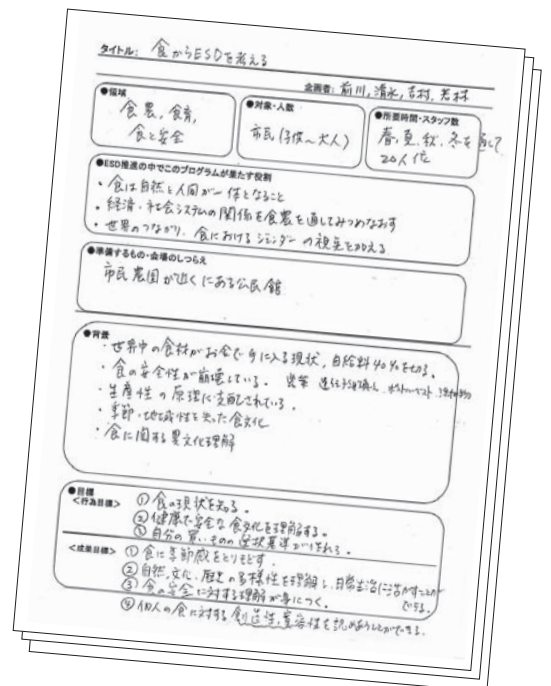 タイトル: 食からESDを考える
企画者: 前川, 清水, 吉村, 若林
●領域
食農, 食育,
食と安全
●対象・人数
市民(子供〜大人)
●所要時間・スタッフ数
春, 夏, 秋, 冬を通して
20人位
●ESD推進の中でこのプログラムが果たす役割
・食は自然と人間が一体となること
・経済・社会システムの関係を食農を通してみつめなおす
・世界のつながり, 食におけるジェンダーの視点を加える
●準備するもの・会場のしつらえ
市民農園が近くにある公民館
●背景
・世界中の食材がお金で手に入る現状, 自給率40%をきる。
・食の安全性が崩壊している。 農薬 遺伝子組換え, ポストハーベスト,
・生産性の原理に支配されている。
・季節・地域性を失った食文化
・食に関する異文化理解
●目標
<行為目標> ① 食の現状を知る。
② 健康で安全な食文化を理解する。
③ 自分の買いものの選択基準が作れる。
<成果目標> ① 食に季節感をとりもどす.
② 自然, 文化, 歴史の多様性を理解し, 日常生活に活かすことができる。
③ 食の安全に対する理解が身につく。
④ 個人の食に対する創造性, 寛容性を認めあうことができる.